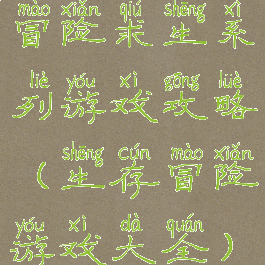 mào xiǎn qiú shēng xì
冒险求生系
liè yóu xì gōng lüè
列游戏攻略
shēng cún mào xiǎn
（生存冒险
yóu xì dà quán
游戏大全）